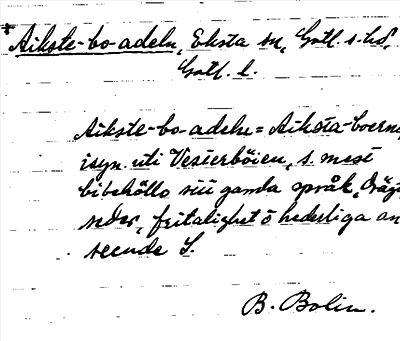 Aikste-bo-adeln, Eksta sn, Gotl. s. hd,
Gotl. l.
Aikste-bo-adeln = Aiksta-boerna
isyn. uti Vesterböien, s. mest
bibehöllo sin gamla språk, dräg
seder, feitalighet o hederliga an
seende S.
B. Bolin.